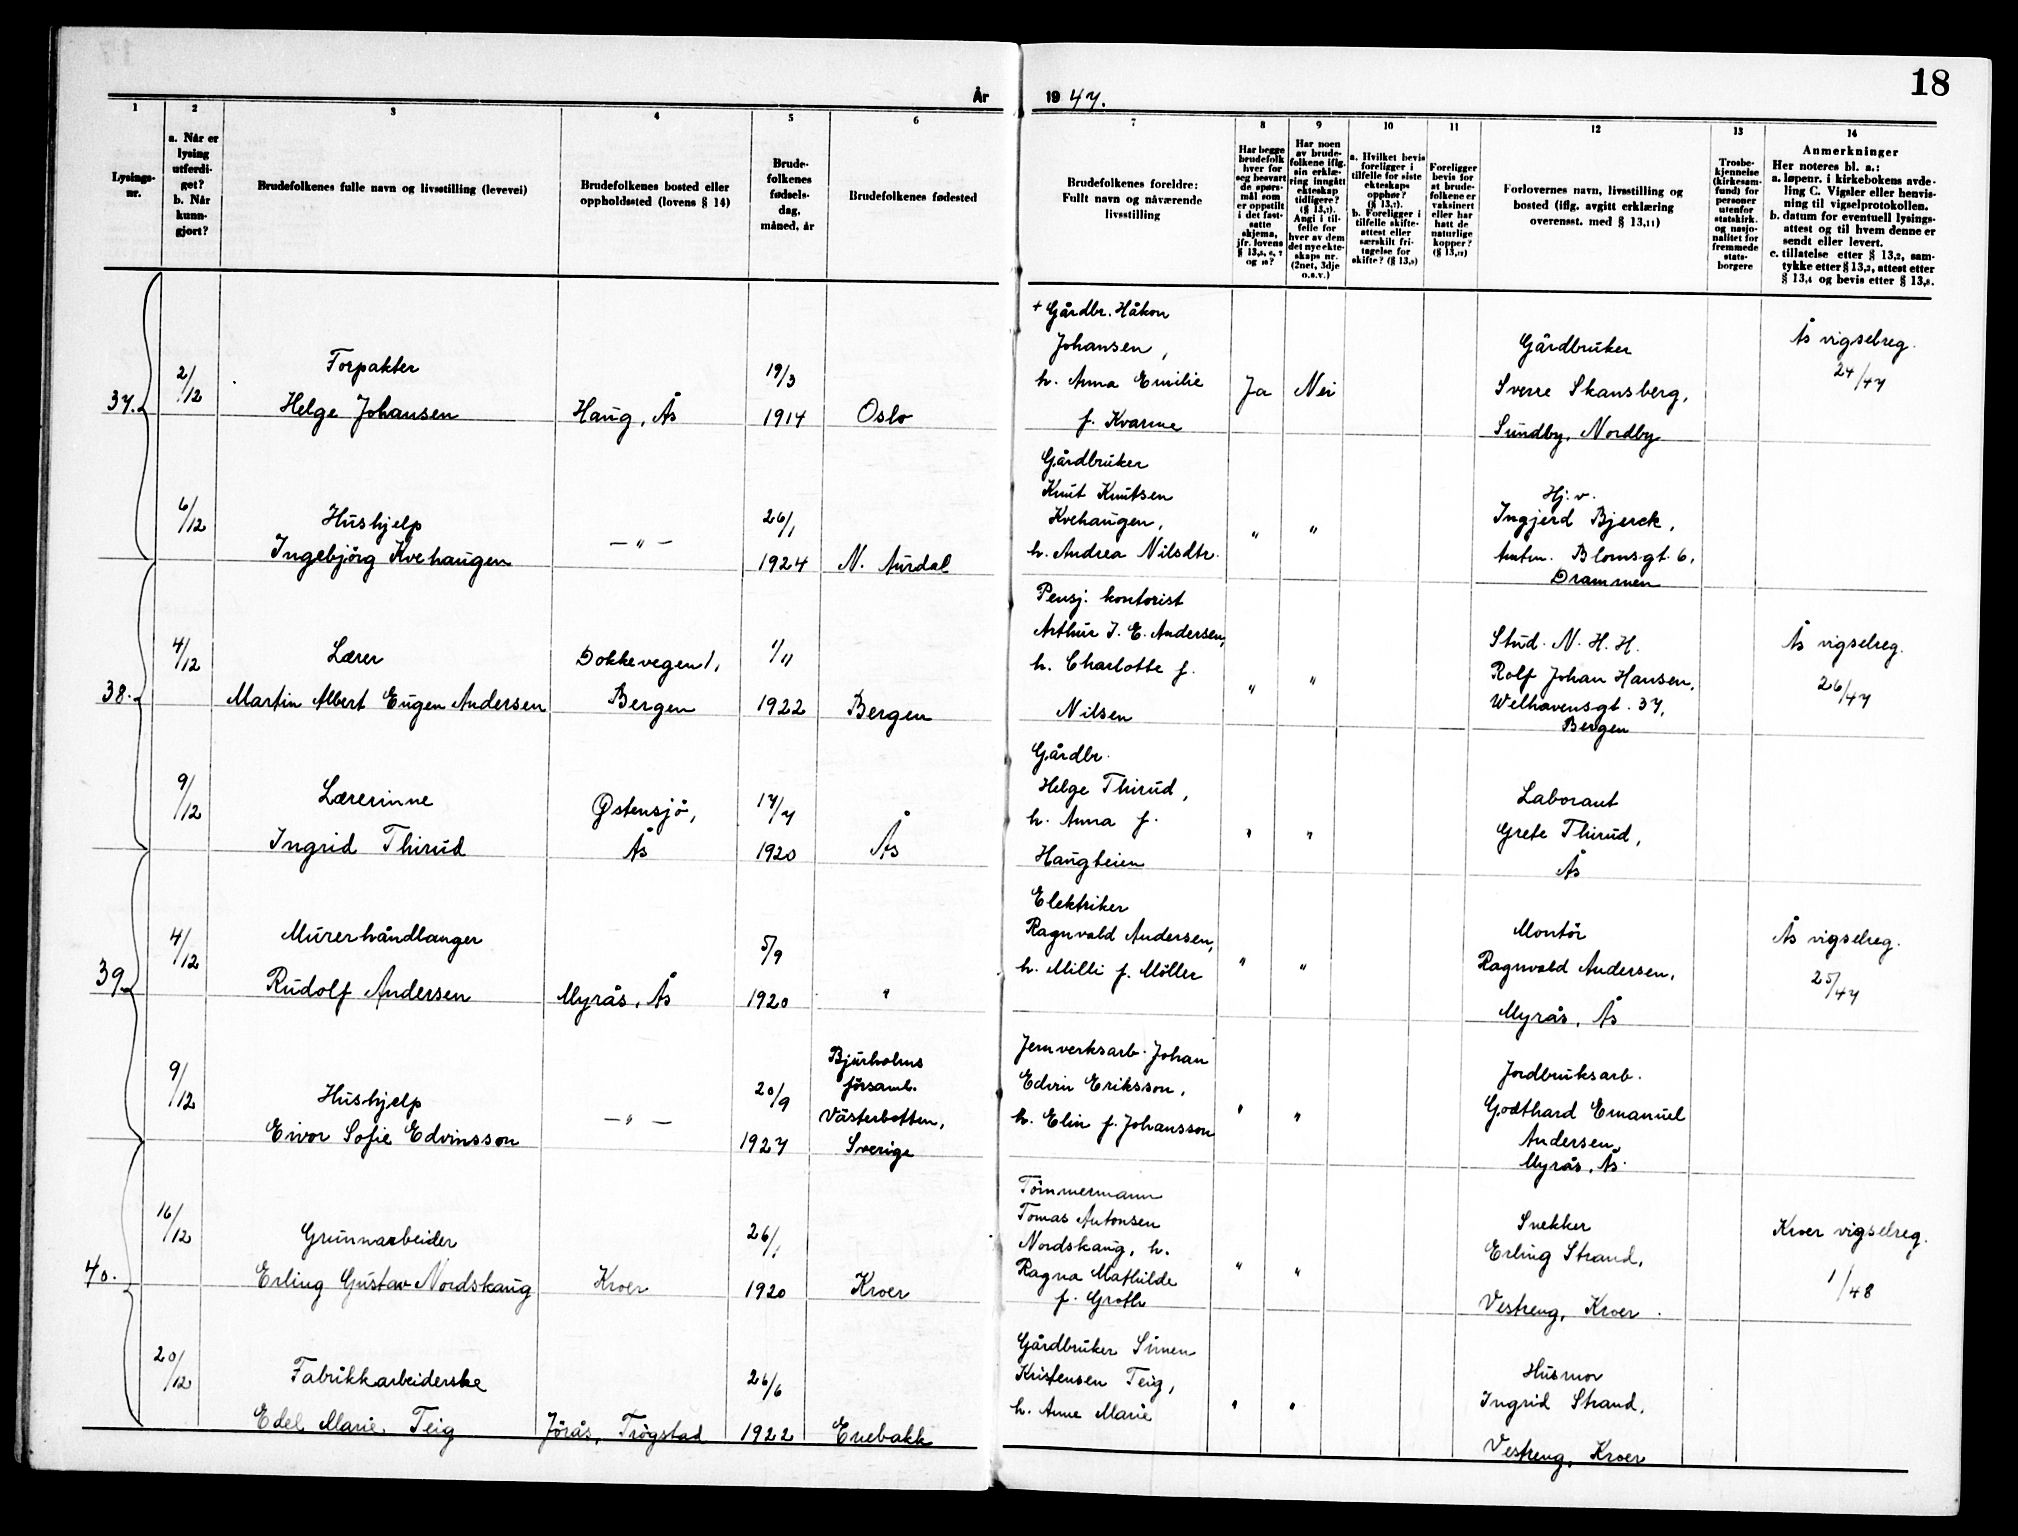 18
År 1947.
1
2
3
4
5
6
7
8
9
10
11
12
13
14
Lysings-
nr.
a. Når er
lysing
utferdi-
get?
b. Når
kunn-
gjort?
Brudefolkenes fulle navn og livsstilling (levevei)
Brudefolkenes bosted eller
oppholdssted (lovens § 14)
Brude-
folkenes
fødsels-
dag,
måned, år
Brudefolkenes fødested
Brudefolkenes foreldre:
Fullt navn og nåværende
livsstilling
Har begge
brudefolk
hver for
seg besvart
de spørs-
mål som
er oppstilt
i det fast-
satte
skjema,
jfr. lovens
§ 13,5, 6, 7
og 10?
Har noen
av brude-
folkene iflg.
sin erklæ-
ring inngått
ekteskap
tidligere?
(§ 13,7).
Angi i til-
felle for
hver av dem
det nye ekte-
skaps nr.
(2net, 3dje
o.s.v.)
a. Hvilket bevis
foreligger i
tilfelle for siste
ekteskaps
opphør?
(§ 13,7).
b. Foreligger i
tilfelle skifte-
attest eller
særskilt fri-
tagelse for
skifte? (§ 13,9)
Foreligger
bevis for
at brude-
folkene er
vaksinert
eller har
hatt de
naturlige
kopper?
(§ 13,12)
Forlovernes navn, livsstilling og
bosted (iflg. avgitt erklæring
overensst. med § 13,11)
Trosbe-
kjennelse
(kirkesam-
fund) for
personer
utenfor
statskirk.
og nasjo-
nalitet for
fremmede
stats-
borgere
Anmerkninger
Her noteres bl. a.:
a. løpenr. i kirkebokens avde-
ling C. Vigsler eller henvis-
ning til vigselprotokollen.
b. datum for eventuell lysings-
attest og til hvem denne er
sendt eller levert.
c. tillatelse etter § 13,2, sam-
tykke etter § 13,3, attest etter
§ 13,4 og bevis etter § 13,8.
37.
2/12
Forpakter
Helge Johansen
Haug, Ås
19/3
1914
Oslo
+ Gårdbr. Håkon
Johansen,
h. Anna Emilie
f. Kvarme
Ja
Nei
Gårdbruker
Sverre Skansberg,
Sundby, Nordby
Ås vigselreg.
24/47
6/12
Hushjelp
Ingebjörg Kvehaugen
— " —
26/1
1924
N. Aurdal
Gårdbruker
Knut Knutsen
Kvehaugen,
h. Andrea Nilsdtr.
"
"
Hj. v.
Ingjerd Bjerck,
Amtm. Blomsgt. 6,
Drammen
38.
4/12
Lærer
Martin Albert Eugen Andersen
Dokkevegen 1,
Bergen
1/11
1922
Bergen
Pensj. kontorist
Arthur J. E. Andersen,
h. Charlotte f.
Nilsen
"
"
Stud. N. H. H.
Rolf Johan Hansen,
Welhavensgt. 37,
Bergen
Ås vigselreg.
26/47
9/12
Lærerinne
Ingrid Thirud
Østensjö,
Ås
17/7
1920
Ås
Gårdbr.
Helge Thirud,
h. Anna f.
Haugteien
"
"
Laborant
Grete Thirud,
Ås
39.
4/12
Murerhåndlanger
Rudolf Andersen
Myrås, Ås
5/9
1920
"
Elektriker
Ragnvald Andersen,
h. Milli f. Möller
"
"
Montör
Ragnvald Andersen,
Myrås, Ås
Ås vigselreg.
25/47
9/12
Hushjelp
Eivor Sofie Edvinsson
— " —
20/9
1927
Bjurholms
församl.
Västerbotten,
Sverige
Jernverksarb. Johan
Edvin Eriksson,
h. Elin f. Johansson
"
"
Jordbruksarb.
Godthard Emanuel
Andersen,
Myrås, Ås.
40.
16/12
Grunnarbeider
Erling Gustav Nordskaug
Kroer
26/1
1920
Kroer
Tömmermann
Tomas Antonsen
Nordskaug, h.
Ragna Mathilde
f. Groth
"
"
Snekker
Erling Strand,
Vestreng, Kroer.
Kroer vigselreg.
1/48
20/12
Fabrikkarbeiderske
Edel Marie Teig
Jörås, Trögstad
26/6
1922
Enebakk
Gårdbruker Simen
Kristensen Teig,
h. Anne Marie
"
"
Husmor
Ingrid Strand,
Vestreng, Kroer